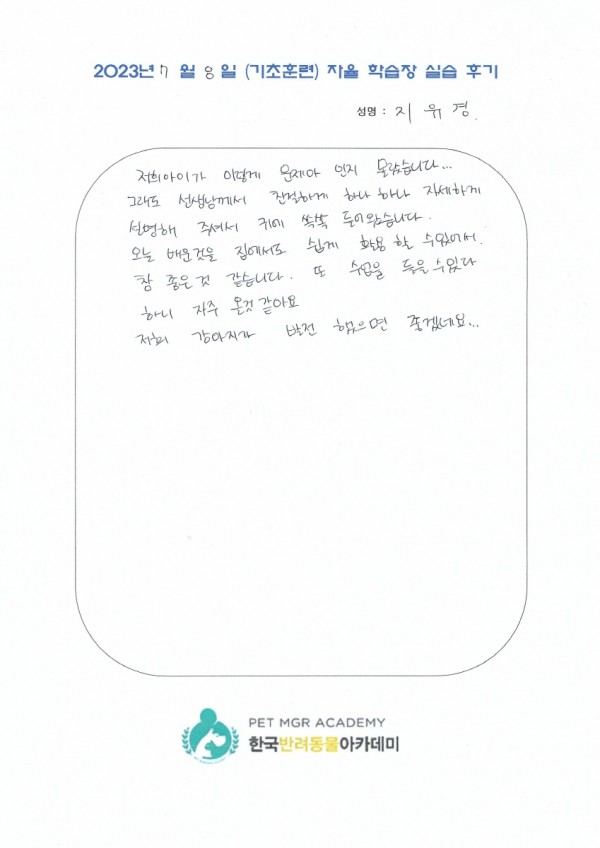 2023년 7 월 8 일 (기초훈련) 자율 학습장 실습 후기
성명 : 지 유 경.
저희아이가 이렇게 문제아 인지 몰랐습니다...
그래도 선생님께서 친절하게 하나 하나 자세하게
설명해 주셔서 귀에 쏙쏙 들어왔습니다.
오늘 배운것을 집에서도 쉽게 활용 할 수있어서.
참 좋은것 같습니다. 또 수업을 들을 수있다
하니 자주 올것 같아요
저희 강아지가 발전 했으면 좋겠네요...
PET MGR ACADEMY
한국반려동물아카데미